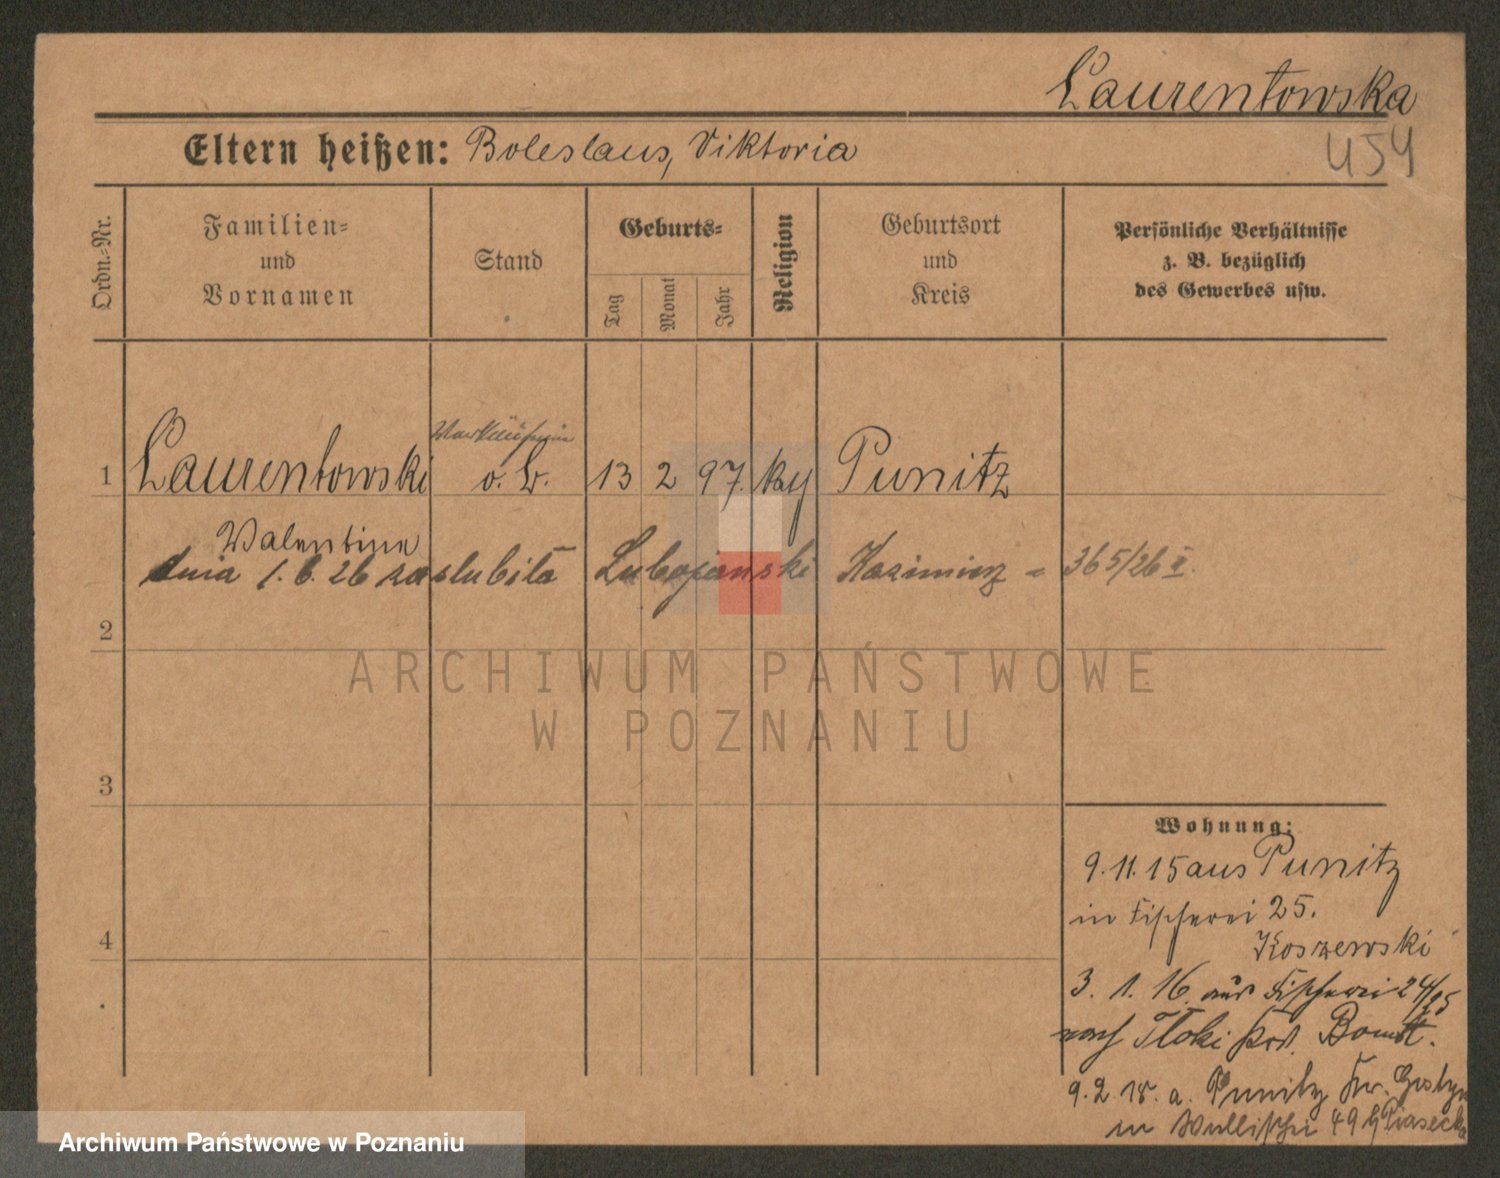 Laurentowska
Eltern heißen: Boleslaus, Viktoria
454
Ordn.-Nr.
Familien-
und
Vornamen
Stand
Geburts-
Tag
Monat
Jahr
Religion
Geburtsort
und
Kreis
Persönliche Verhältnisse
z. B. bezüglich
des Gewerbes usw.
Verkäuferin
1 Laurentowski o. B. 13 2 97. kath Punitz
Valentine
dnia 1.6.26 zaślubiła Lubojański Kazimierz - 365/26 II.
2
3
4
Wohnung:
9.11.15 aus Punitz
in Fischerei 25.
Koszewski
3. 1. 16. aus Fischerei 24/25
nach Tloki Krs. Bomst.
9.2.18. a. Punitz Kr. Gostyn
in Wallischei 49 b/Piasecka
ARCHIWUM PAŃSTWOWE
W POZNANIU
Archiwum Państwowe w Poznaniu